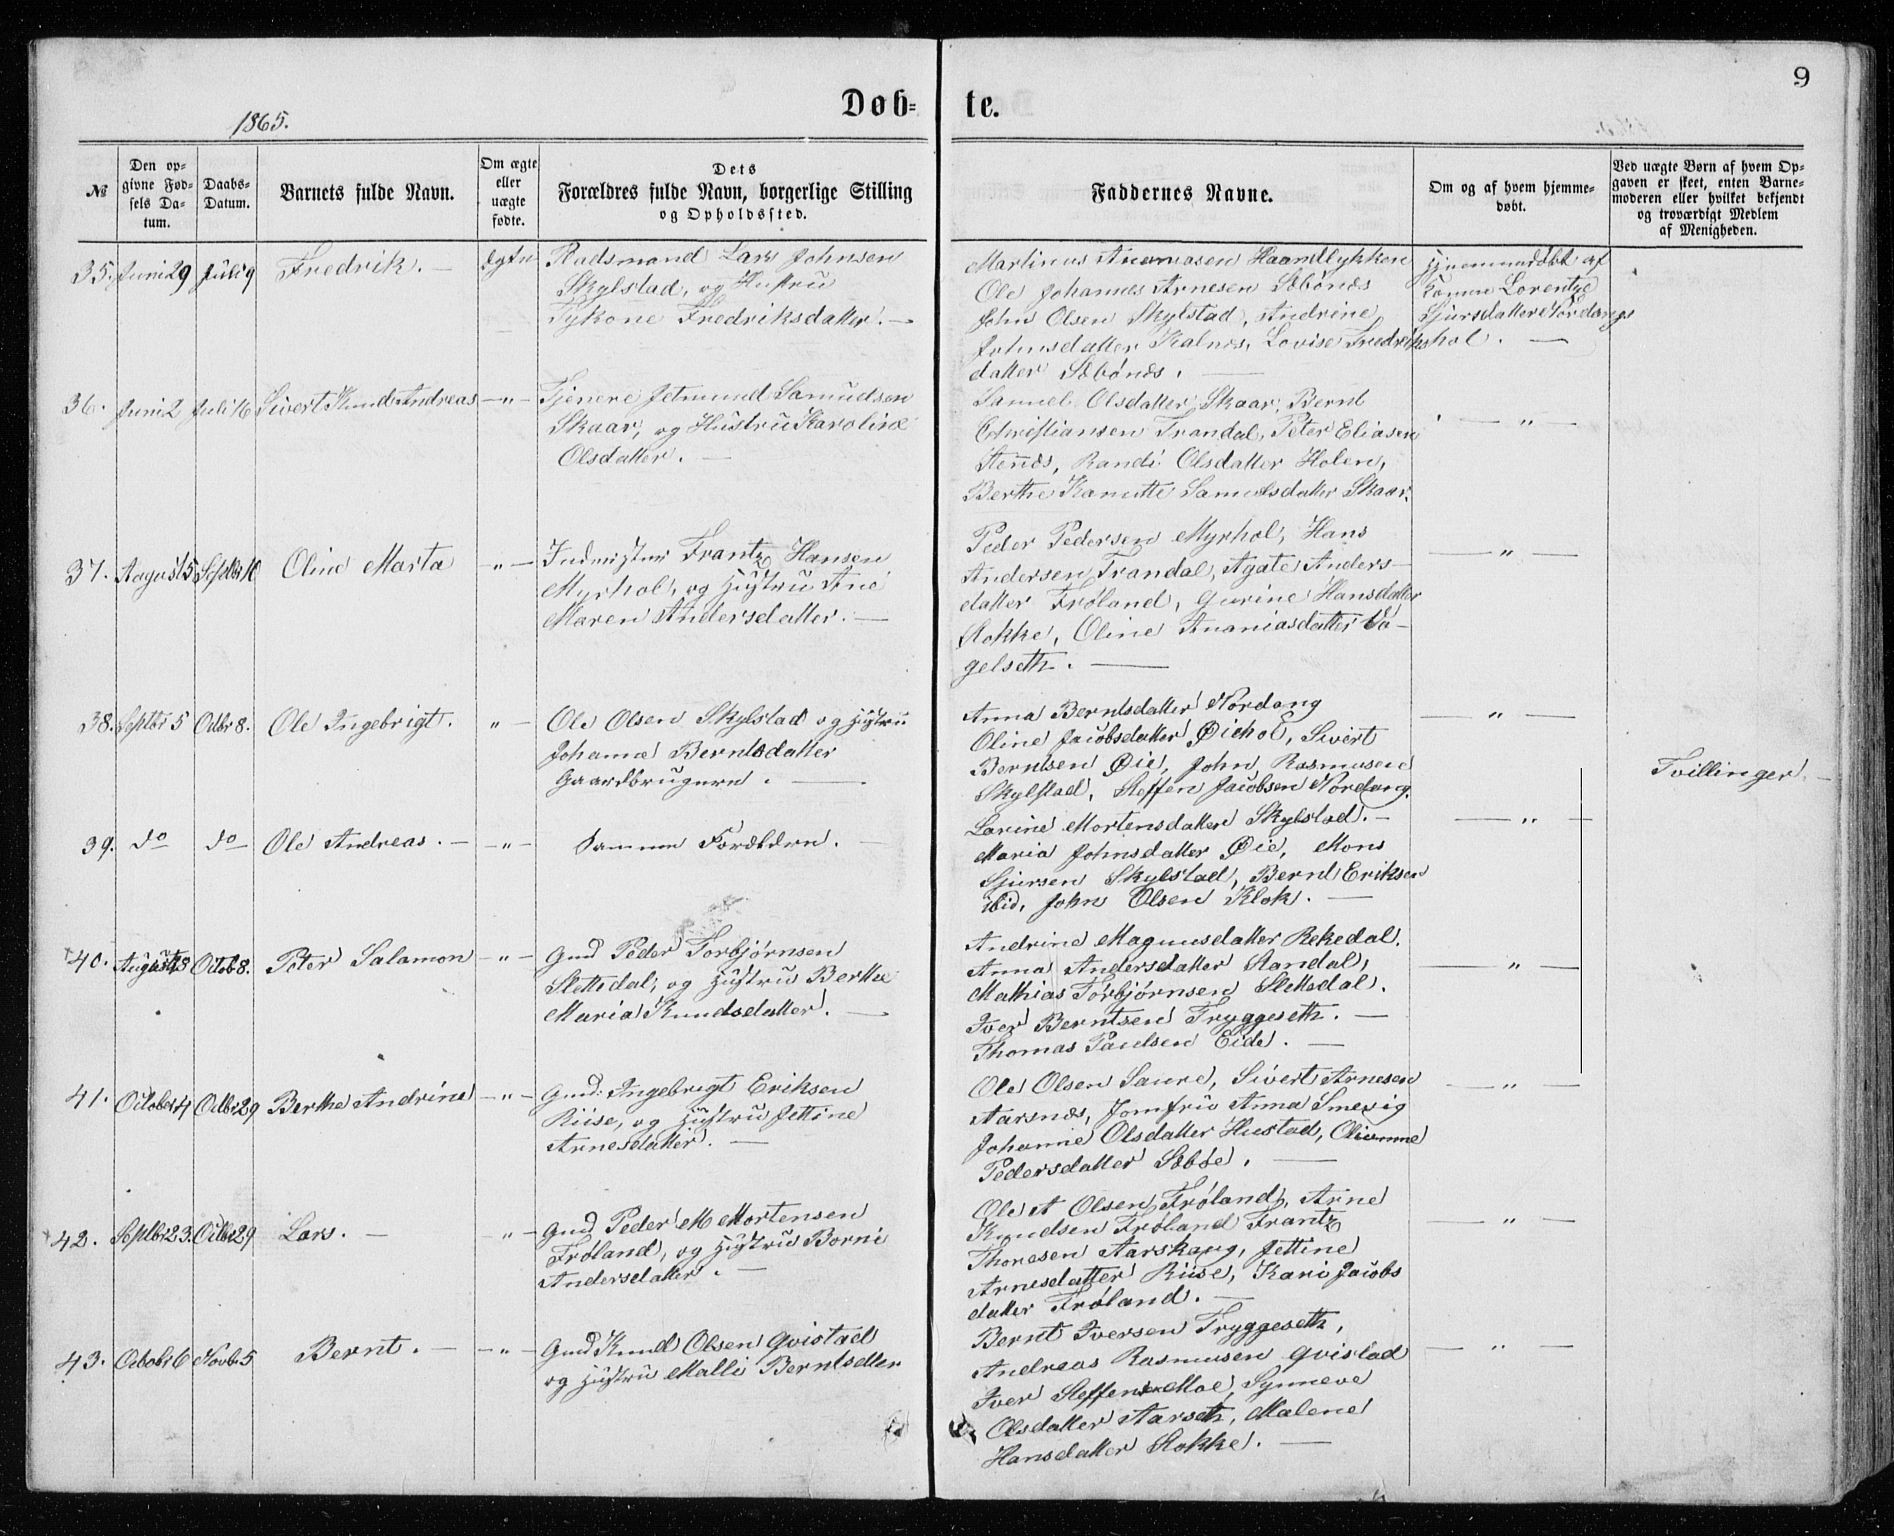 9
1865.
Døb- te.
№
Den opgivne Fødsels Datum.
Daabs-Datum.
Barnets fulde Navn.
Om ægte eller uægte fødte.
Dets Forældres fulde Navn, borgerlige Stilling og Opholdssted.
Faddernes Navne.
Om og af hvem hjemmedøbt.
Ved uægte Børn af hvem Opgaven er skeet, enten Barnemoderen eller hvilket bekjendt og troværdigt Medlem af Menigheden.
35. Juni 29 Juli 9 Fredrik. — Ægte
Baadsmand Lars Johnsen
Skylstad, og Hustru
Fredriksdatter. —
Martinus
Ole Johannes Arnesen Sæbønæs
John Olsen Skylstad, Andrine
Johnsdatter Kalnæs, Lovise Fredriks
datter Sæbønæs. —
Hjemmedøbt af
Lorentze
Sjursdatter Nordangs
hol. —
36. Juni 2 Juli 16 Sivert Knud Andreas — " —
Tjenere Jetmund Samuelsen
Skaar, og Hustru Karoline
Olsdatter. —
Samuel Olsdatter Skaar, Bernt
Christiansen Trandal, Peter Eliasen
Stenæs, Randi Olsdatter Holen,
Berthe Kanutte Samuelsdatter Skaar.
— " —
37. August 5 Septbr 10 Oline Marta " —
Inderster Frantz Hansen
Myrhol, og Hustru Ane
Maren Andersdatter. —
Peder Pedersen Myrhol, Hans
Andersen Trandal, Agate Anders-
datter Frøland, Gurine Hansdatter
Stokke, Oline Ananiasdatter Va-
gelseth. —
— " —
38. Septbr 5 Octbr 8. Ole Ingebrigt. " —
Ole Olsen Skylstad og Hustru
Johanne Berntsdatter
Gaardbrugere. —
Anna Berntsdatter Nordang
Oline Jacobsdatter Øiehol, Sivert
Berntsen Øie, John Rasmusen
Skylstad, Steffen Jacobsen Nordang.
— " —
Tvillinger. —
39. do do Ole Andreas. — — " —
Samme Forældre. —
Larine Mortensdatter Skylstad. —
Maria Johnsdatter Øie, Mons
Sjursen Skylstad, Bernt Eriksen
ibid, John Olsen Klok. —
— " —
40. August 8 Octob 8. Peter Salamon — " —
Gmd Peder Torbjørnsen
Slettedal, og Hustru Berthe
Maria Knudsdatter. —
Andrine Magnusdatter Rekedal.
Anna Andersdatter Standal,
Mathias Torbjørnsen Slettedal.
Iver Berntsen Tryggeseth. —
Thomas Paulsen Eide. —
— " —
41. October 4 Octbr 29 Berthe Andrine — " —
Gmd: Ingebrigt Eriksen
Riise, og Hustru Jettine
Arnesdatter. —
Ole Olsen Saure, Sivert Arnesen
Aarsnæs, Jomfru Anna
Johanne Olsdatter Hustad, Olianne
Pedersdatter Sæbøe. —
— " —
42. Septbr 23. Octbr 29 Lars. — " —
Gmd Peder M Mortensen
Frøland, og Hustru Borni
Andersdatter. —
Ole A Olsen Frøland, Arne
Knudsen Frøland Frantz
Thoresen Aarskaug, Jettine
Arnesdatter Riise, Kari Jacobs
datter Frøland. —
— " —
43. October 6 Novbr 5 Bernt. — — " —
Gmd Knud Olsen Qvistad
og Hustru Malli Berntsdtter
Bernt Iversen Tryggeseth,
Andreas Rasmusen Qvistad
Iver Steffensen Moe, Synneve
Olsdatter Aarseth, Malene
Hansdatter Stokke. —
— " —